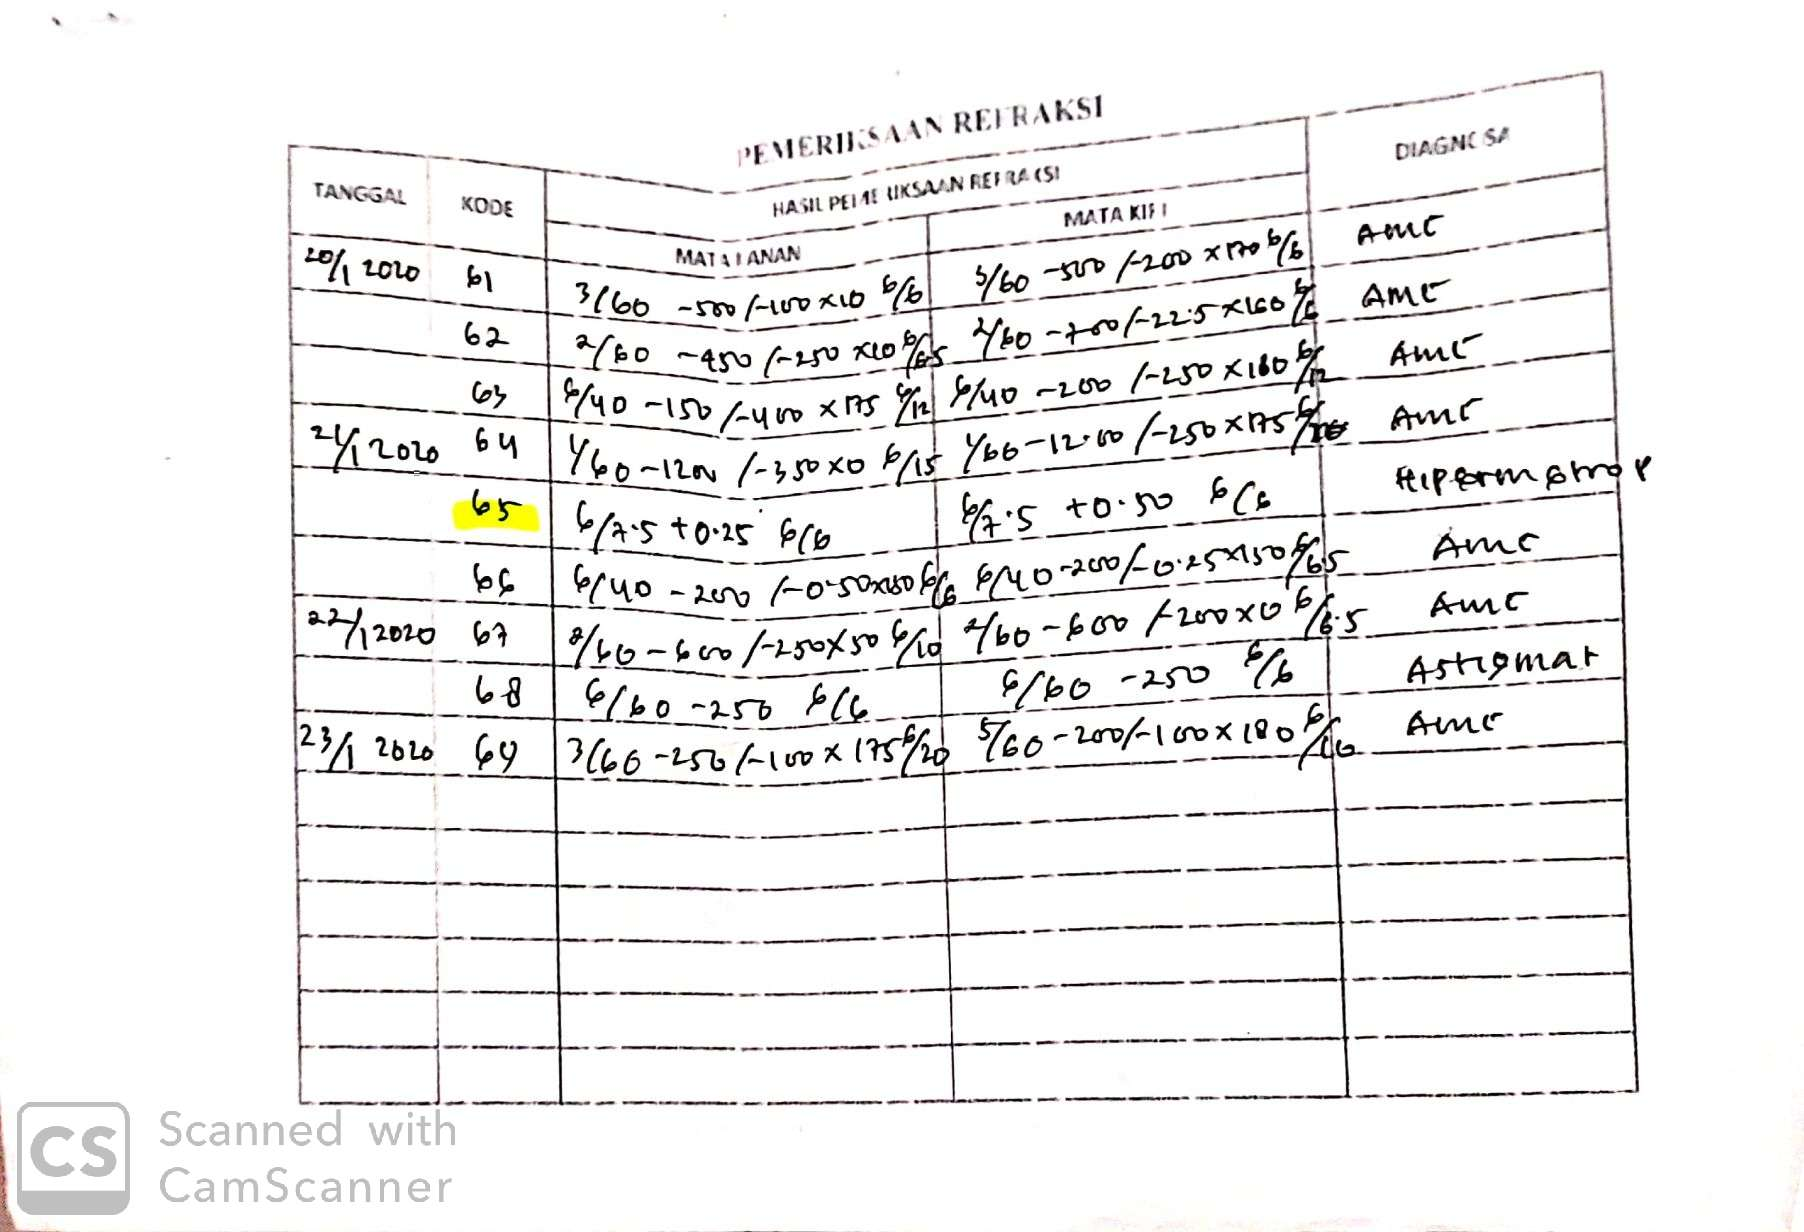 PEMERIKSAAN REFRAKSI
TANGGAL KODE HASIL PEMERIKSAAN REFRAKSI DIAGNOSA
MATA KANAN MATA KIRI
20/1 2020 61 3/60 -500 /-100 x10 6/6 5/60 -500 /-200 x170 6/6 AMC
62 2/60 -450 /-250 x10 6/6.5 2/60 -700 /-22.5 x160 6/6 AMC
63 6/40 -150 /-400 x175 6/12 6/40 -200 /-250 x180 6/12 AMC
21/1 2020 64 1/60 -1200 /-350 x0 6/15 1/60 -12.00 /-250 x175 AMC
65 6/7.5 +0.25 6/6 6/7.5 +0.50 6/6 Hipermetrop
66 6/40 -200 /-0.50x180 6/6 6/40 -200 /-0.25x150 6/6.5 AMC
22/1 2020 67 2/60 -600 /-250x50 6/10 2/60 -600 /-200 x0 6/6.5 AMC
68 6/60 -250 6/6 6/60 -250 6/6 Astigmat
23/1 2020 69 3/60 -250 /-100 x 175 6/20 5/60 -200/-100 x 180 6/10 AMC
CS Scanned with
CamScanner